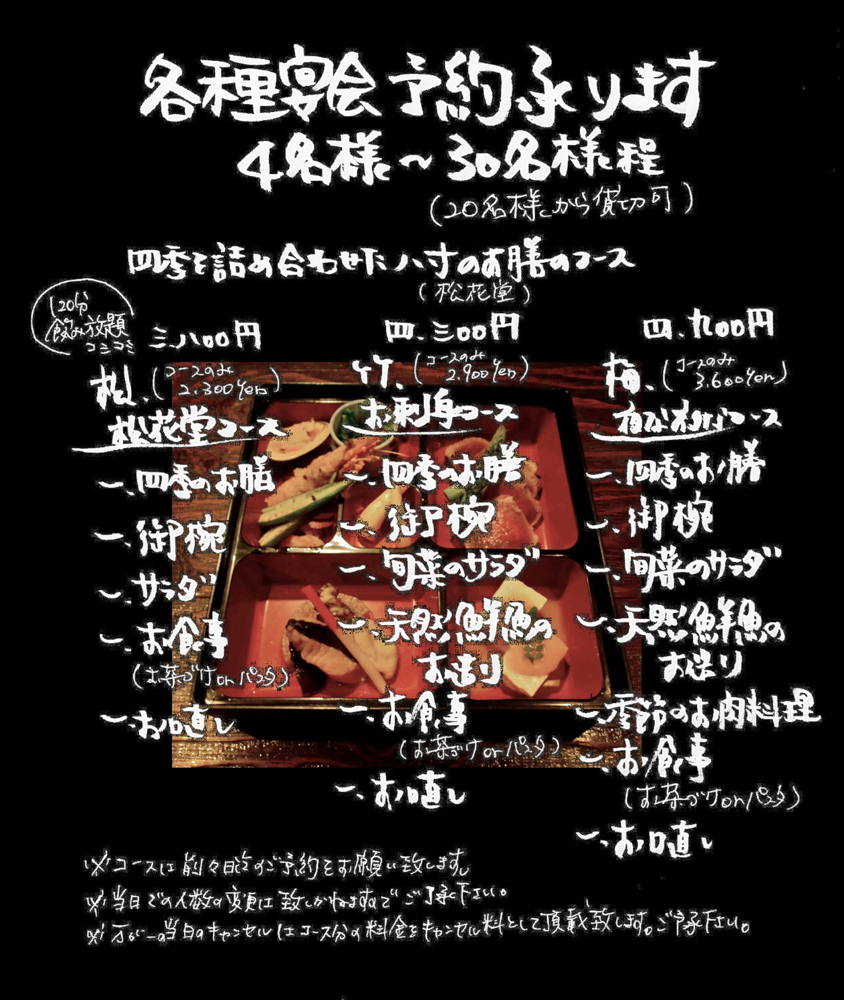 各種宴会予約承ります
4名様〜30名様程
(20名様から貸切可)
四季を詰め合わせた八寸のお膳のコース
(松花堂)
120分
飲み放題
コミコミ
三.八00円
松、(コースのみ 2.300yen)
松花堂コース
一、四季のお膳
一、御椀
一、サラダ
一、お食事
(お茶づけorパスタ)
一、お口直し
四、三00円
竹、(コースのみ 2.900yen)
お刺身コース
一、四季のお膳
一、御椀
一、旬菜のサラダ
一、天然鮮魚の
お造り
一、お食事
(お茶づけorパスタ)
一、お口直し
四、九00円
梅、(コースのみ 3.600yen)
コース
一、四季のお膳
一、御椀
一、旬菜のサラダ
一、天然鮮魚の
お造り
一、季節のお肉料理
一、お食事
(お茶づけorパスタ)
一、お口直し
※コースは前々日迄のご予約をお願い致します
※当日での人数の変更は致しかねますでご了承下さい。
※万が一の当日のキャンセルはコース分の料金をキャンセル料として頂戴致します。ご了承下さい。